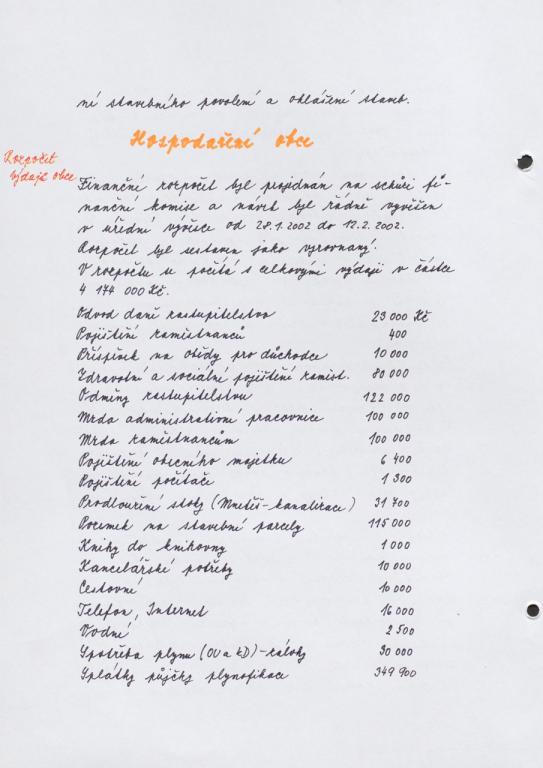 ní stavebního povolení a ohlášení staveb.
Hospodaření obce
Rozpočet
výdaje obce
Finanční rozpočet byl projednán na schůzi fi-
nanční komise a návrh byl řádně vyvěšen
v úřední vývěsce od 28.1.2002 do 12.2.2002.
Rozpočet byl sestaven jako vyrovnaný.
V rozpočtu se počítá s celkovými výdaji v částce
4 174 000 Kč.
Odvod daní zastupitelstvo 23 000 Kč
Pojištění zaměstnanců 400
Příspěvek na obědy pro důchodce 10 000
Zdravotní a sociální pojištění zaměst. 80 000
Odměny zastupitelstvu 122 000
Mzda administrativní pracovnice 100 000
Mzda zaměstnancům 100 000
Pojištění obecního majetku 6 400
Pojištění počítače 1 300
Prodloužení stoky (Mnetěš-kanalizace) 31 700
Pozemek na stavební parcely 115 000
Knihy do knihovny 1 000
Kancelářské potřeby 10 000
Cestovní 10 000
Telefon, Internet 16 000
Vodné 2 500
Spotřeba plynu (OÚ a KD)-zálohy 30 000
Splátky půjčky plynofikace 349 900